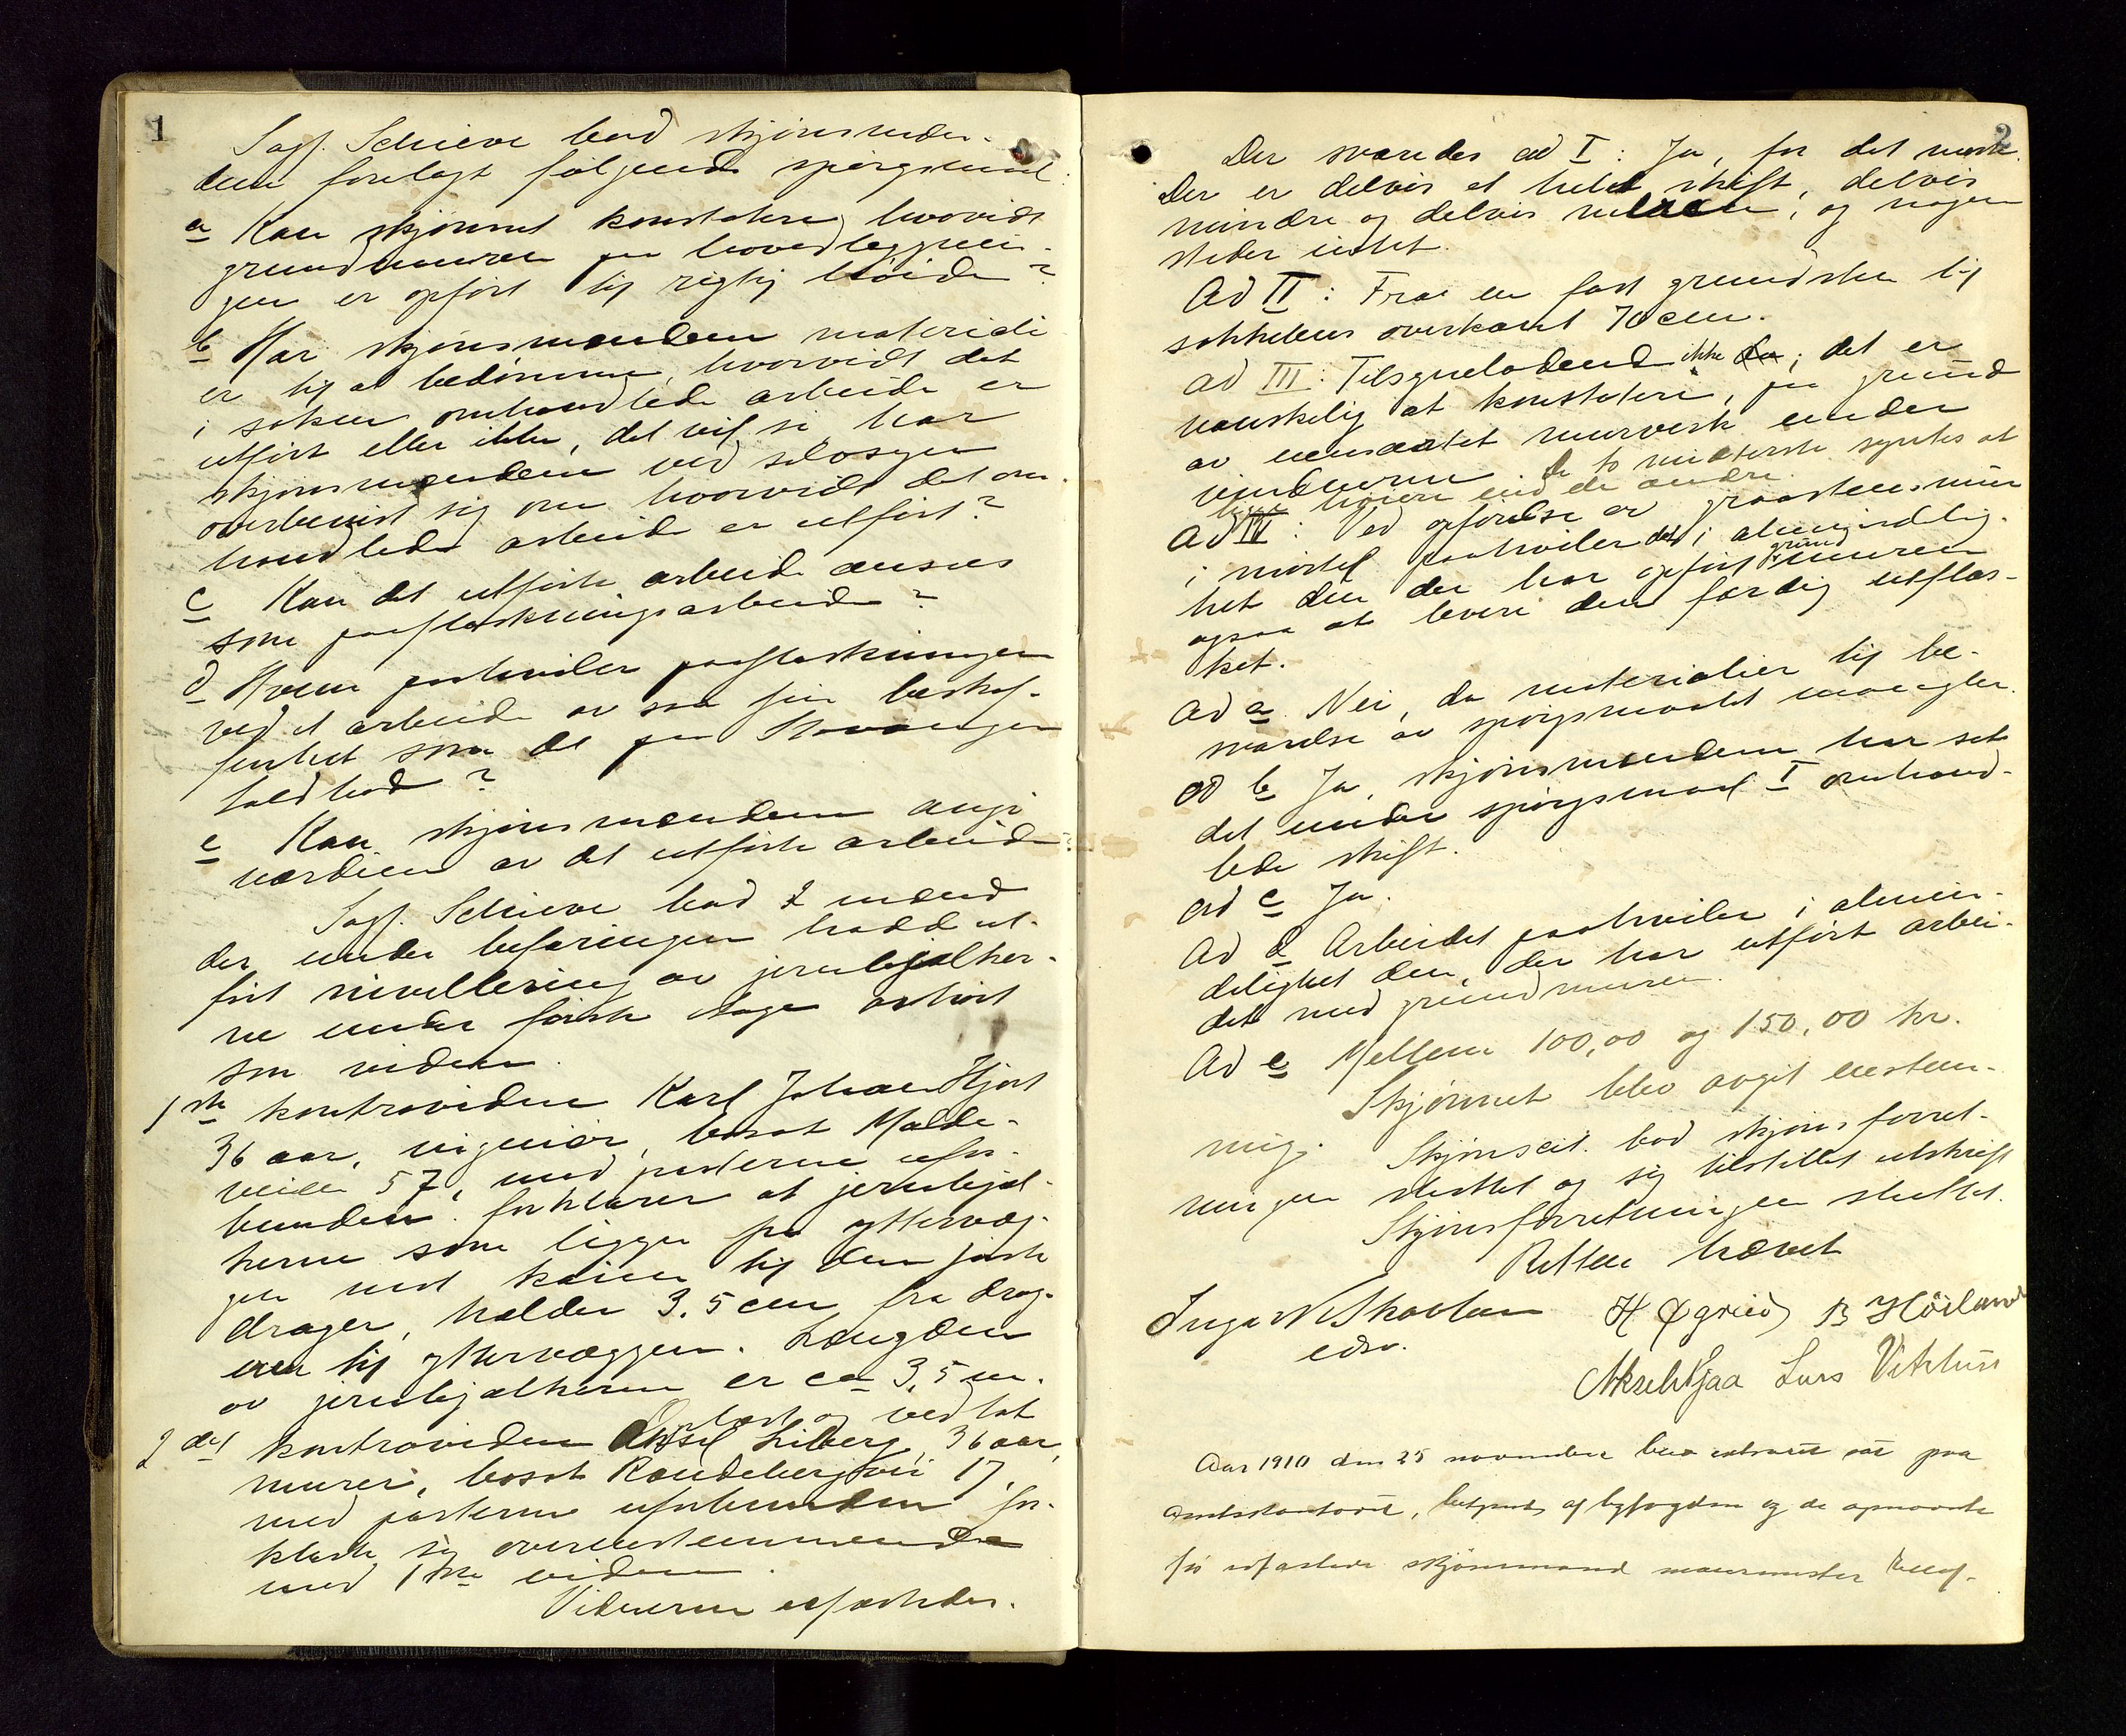 1
Sagf. Schieve bad skjønsmæn-
dene forelagt følgende spørgsmaal:
a Kan skjønnet konstatere, hvorvidt
grundmuren paa hovedbygnin-
gen er opført til rigtig høide?
b Har skjønsmændene materiale
er til at bedømme, hvorvidt det
i saken omhandlede arbeide er
utført eller ikke, det vil si har
skjønsmændene ved selvsyn
overbevist sig om hvorvidt det om-
handlede arbeide er utført?
c Kan det utførte arbeide ansees
som paaflaskningsarbeide?
d Hvem paahviler paaflaskningen
ved et arbeide av saa fin beskaf-
fenhet som det paa Stavanger
toldbod?
e Kan skjønsmændene angi
værdien av det utførte arbeide?
Sagf. Schieve bad 2 mænd
der under befaringen hadde ut-
ført nivellering av jernbjælker-
ne under første etage avhørt
som vidner.
1ste kontravidne Karl Johan Hjort
36 aar, ingeniør, bosat Molde-
veien 57, med parterne ufor-
bunden. forklarer at jernbjæl-
kerne som ligger fra yttervæg-
gen mot kaien til den første
drager, helder 3.5 cm fra drag-
eren til yttervæggen. Længden
av jernbjælkerne er ca 3,5 m.
Oplæst og vedtat
2det kontravidne Aksel Liberg, 36 aar,
murer, bosat Randebergvei 17,
med parterne uforbunden for-
klarte sig overensstemmende
med 1ste vidne.
Vidnerne erfarledes.
2
Der svaredes ad I: Ja, for det meste.
Der er delvis et helt skift, delvis
mindre og delvis mellem, og nogen
steder intet.
Ad II: Fra en fast grundsten til
sokkelens overkant 70 cm.
ad III: Tilsyneladende ikke; det er
vanskelig at konstatere, paa grund
av uensartet murverk under
vinduerne. De to midterste syntes at
ligge høiere end de andre.
Ad IV: Ved opførelse av graastensmur
i mørtel paahviler det i almindelig-
het den der har opført grund muren
ogsaa at levere den færdig utflas-
ket.
Ad a Nei, da materialier til be-
svarelse av spørgsmaalet mangler.
ad b Ja, skjønsmændene har set
det under spørgsmaal I omhand-
lede skift.
ad c Ja.
Ad d Arbeidet paahviler i almin-
delighet den, der har utført arbei-
det med grundmuren.
Ad e Mellem 100,00 og 150,00 kr.
Skjønnet blev avgit enstem-
mig. Skjønscit. bad skjønsforret-
ningen sluttet og sig tilstillet utskrift
Skjønsforretningen sluttet.
Retten hævet
Inga N Skavlan H Øgreid B Höiland
edsv.
Lars
Aar 1910 den 25 november blev extraret sat paa
amtskontoret, betjent af byfogden og de opnævnte
skjønsmænd murmester